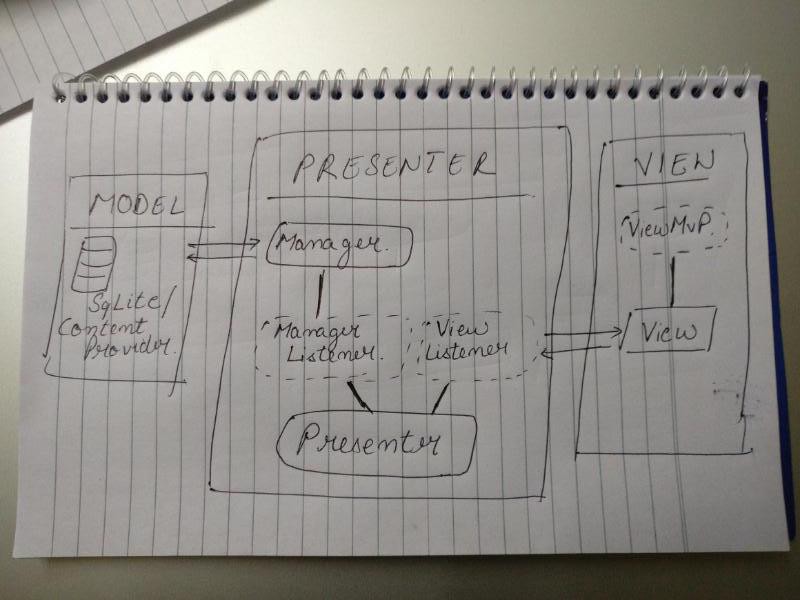 MODEL
SqLite/
Content
Provider.
PRESENTER
Manager.
Manager
Listener.
View
Listener
Presenter
VIEW
ViewMvP.
View